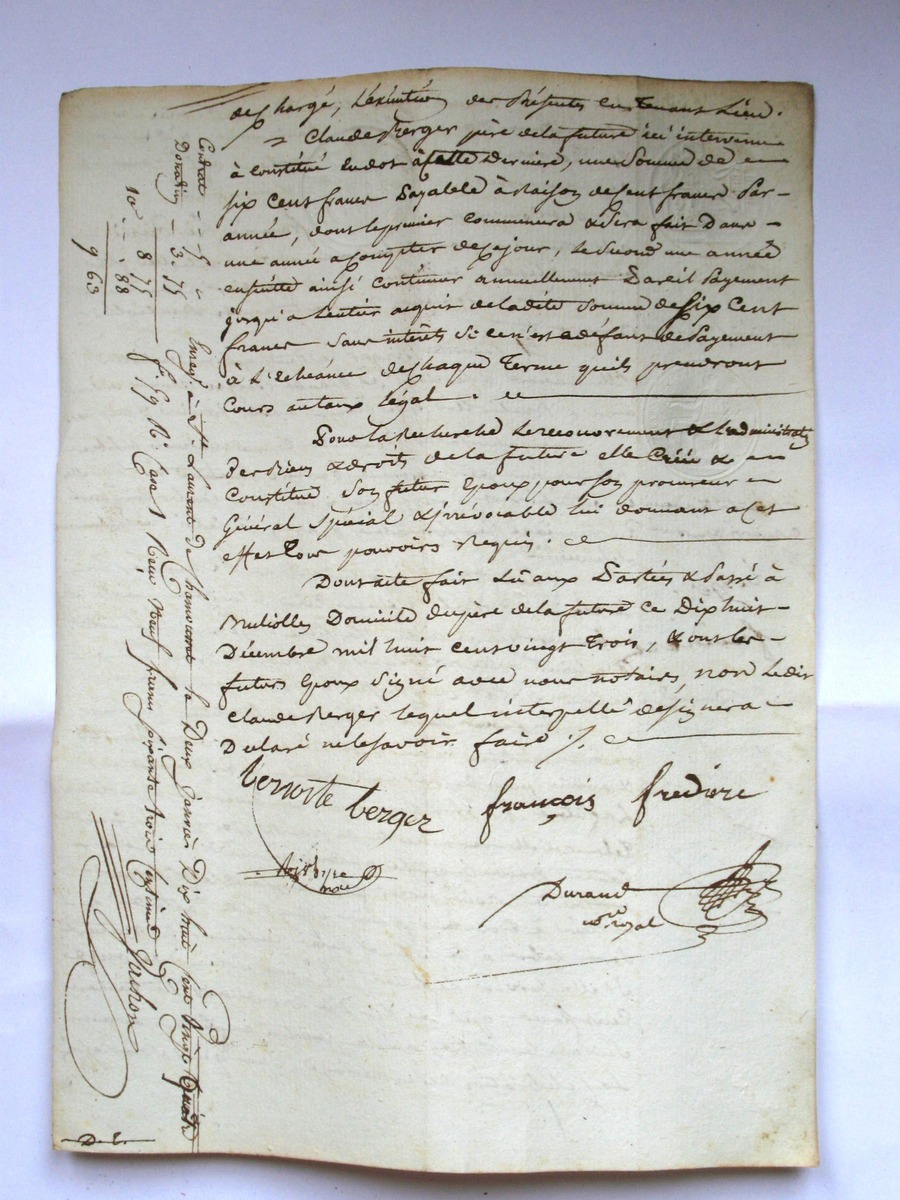 dechargé, l'exécution des présentes en tenant lieu.
Claude Berger père de la future ici intervenu
à constitué en dot à cette derniere, une Somme de
six Cent francs payable à raison de Cent francs Par
année, dont le premier commencera & sera fait Dans
une année a compter de ce jour, le Second une année
ensuitte ainsi continuer annuellement Pareil Payement
jusqu'a l'entier acquit de la dite Somme de Six Cent
francs Sans intérêts Si ce n'est a défaut de Payement
à L'echéance de chaque Terme qu'ils prendront
Cours au taux légal.
Pour la recherche le recouvrement & l'administration
Des Biens & droits de la future elle Créé &
Constitue Son futur Epoux pour Son procureur
Général Spécial & irrévocable lui donnant a cet
effet Tous pouvoirs Requis.
Dont acte fait Lu aux Parties & Passé à
Domicile du père de la future ce Dix huit
Décembre mil huit cent vingt Trois, & ont les
futurs Epoux Signé avec nous notaires, non le dit
Claude Berger lequel interpellé de signer a
Déclaré ne le Savoir faire
benoite berger françois fredière
Durand
nore royal
Contrat - 5 "
Donation - 3. 75
8 75
10e . 88
9 63
Enregé à St Laurent de Chamousset le Deux janvier Dix huit Cent Vingt Quatre
fo 59 Ro Case 1 Reçu Neuf francs soixante trois Centimes
D. L.